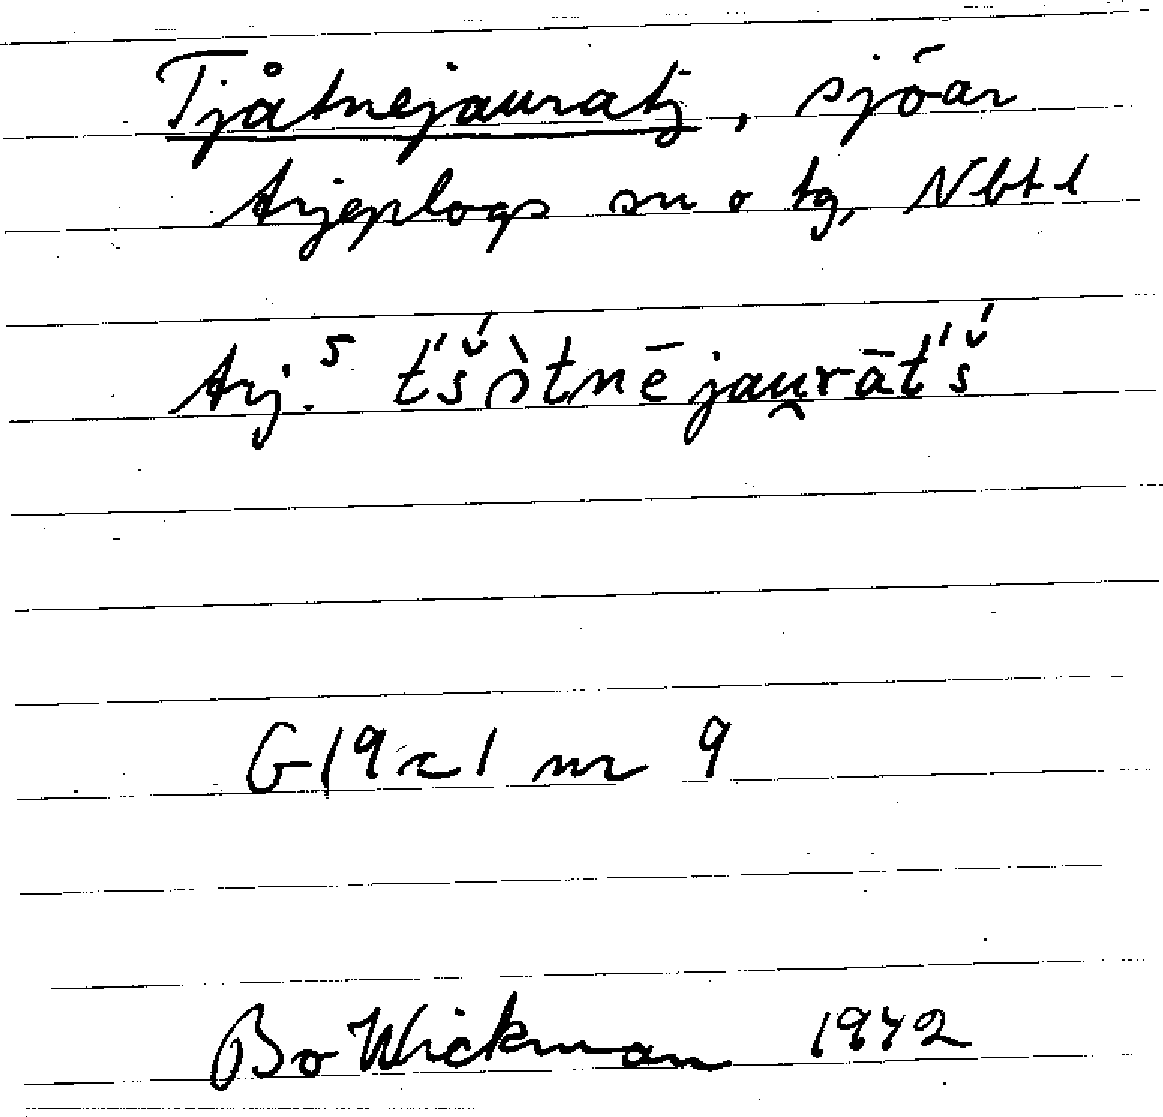 Tjåtnejauratj, sjöar
Arjeplogs sn o tg, Nbt l
Arj.⁵ t́š́ɔ̀tnējau̯rāt́š́
G19a1 nr 9
Bo Wickman 1942